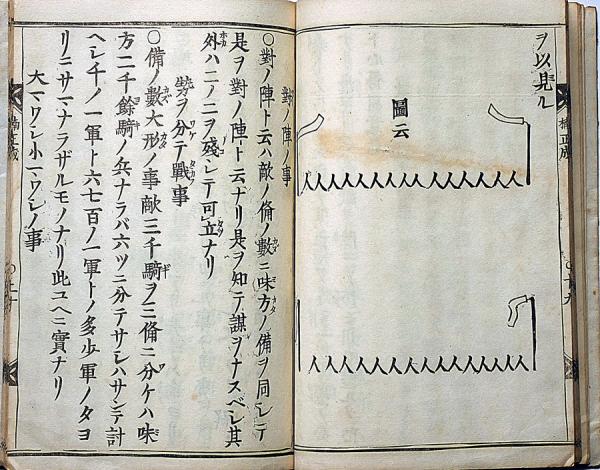 楠正成
〇十九
ヲ以見ル
圖云
對ノ陣ノ事
〇對ノ陣ト云ハ敵ノ備ノ數ニ味方ノ備ヲ同シテ
是ヲ對ノ陣ト云ナリ是ヲ知テ謀ヲナスベシ其
外ハ二ノ二ヲ殘シテ可立ナリ
勢ヲ分テ戰事
〇備ノ數大形ノ事敵三千騎ヲ三備ニ分ケハ味
方二千餘騎ノ兵ナラバ六ツニ分テサシハサンテ討
ヘシ千ノ一軍ト六七百ノ一軍トノ多歩軍ノタヨ
リニサマナラザルモノナリ此ユヘニ實ナリ
大マワシ小マワシノ事
楠正成